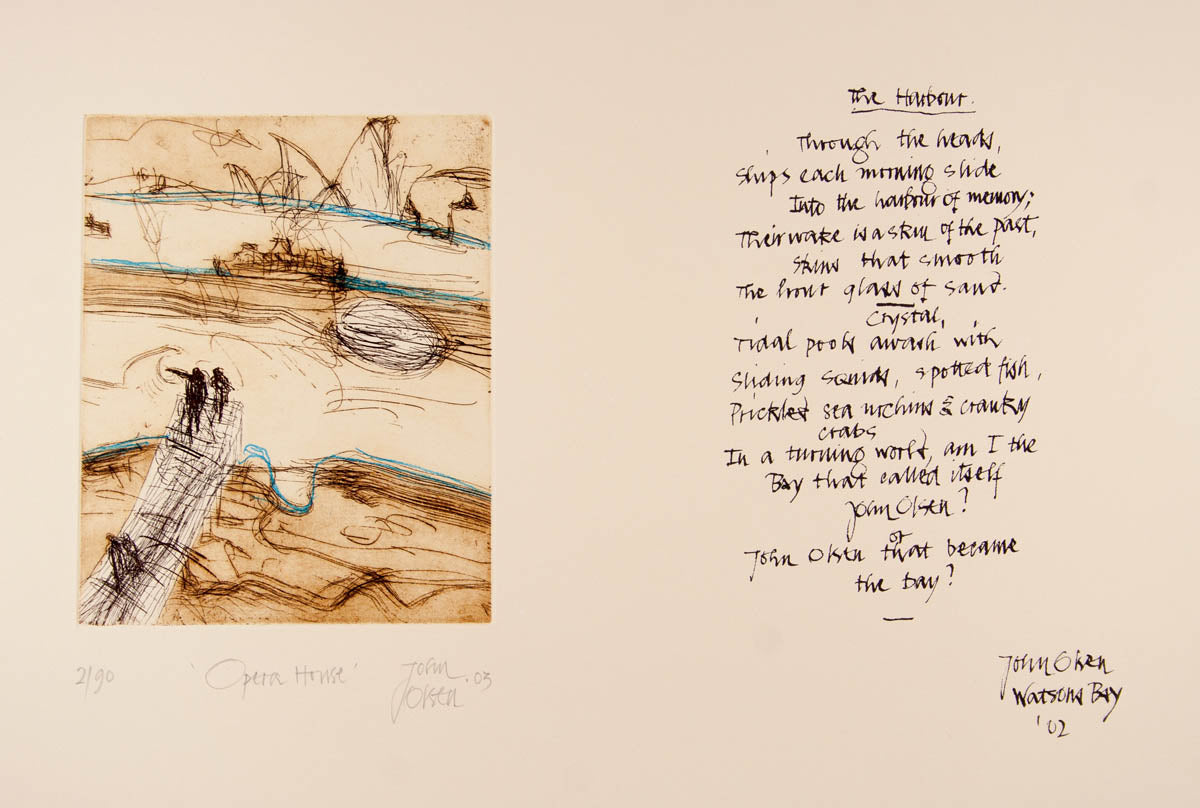 The Harbour.
Through the heads,
Ships each morning slide
Into the harbour of memory;
Their wake is a skin of the past,
Skins that smooth
The hour glass of sand.
Crystal,
Tidal pools awash with
Sliding squids, spotted fish,
Prickled sea urchins & cranky
crabs
In a turning world, am I the
Bay that called itself
John Olsen?
or
John Olsen that became
the bay?
John Olsen
Watsons Bay
'02
2/90 'Opera House' John
Olsen .03